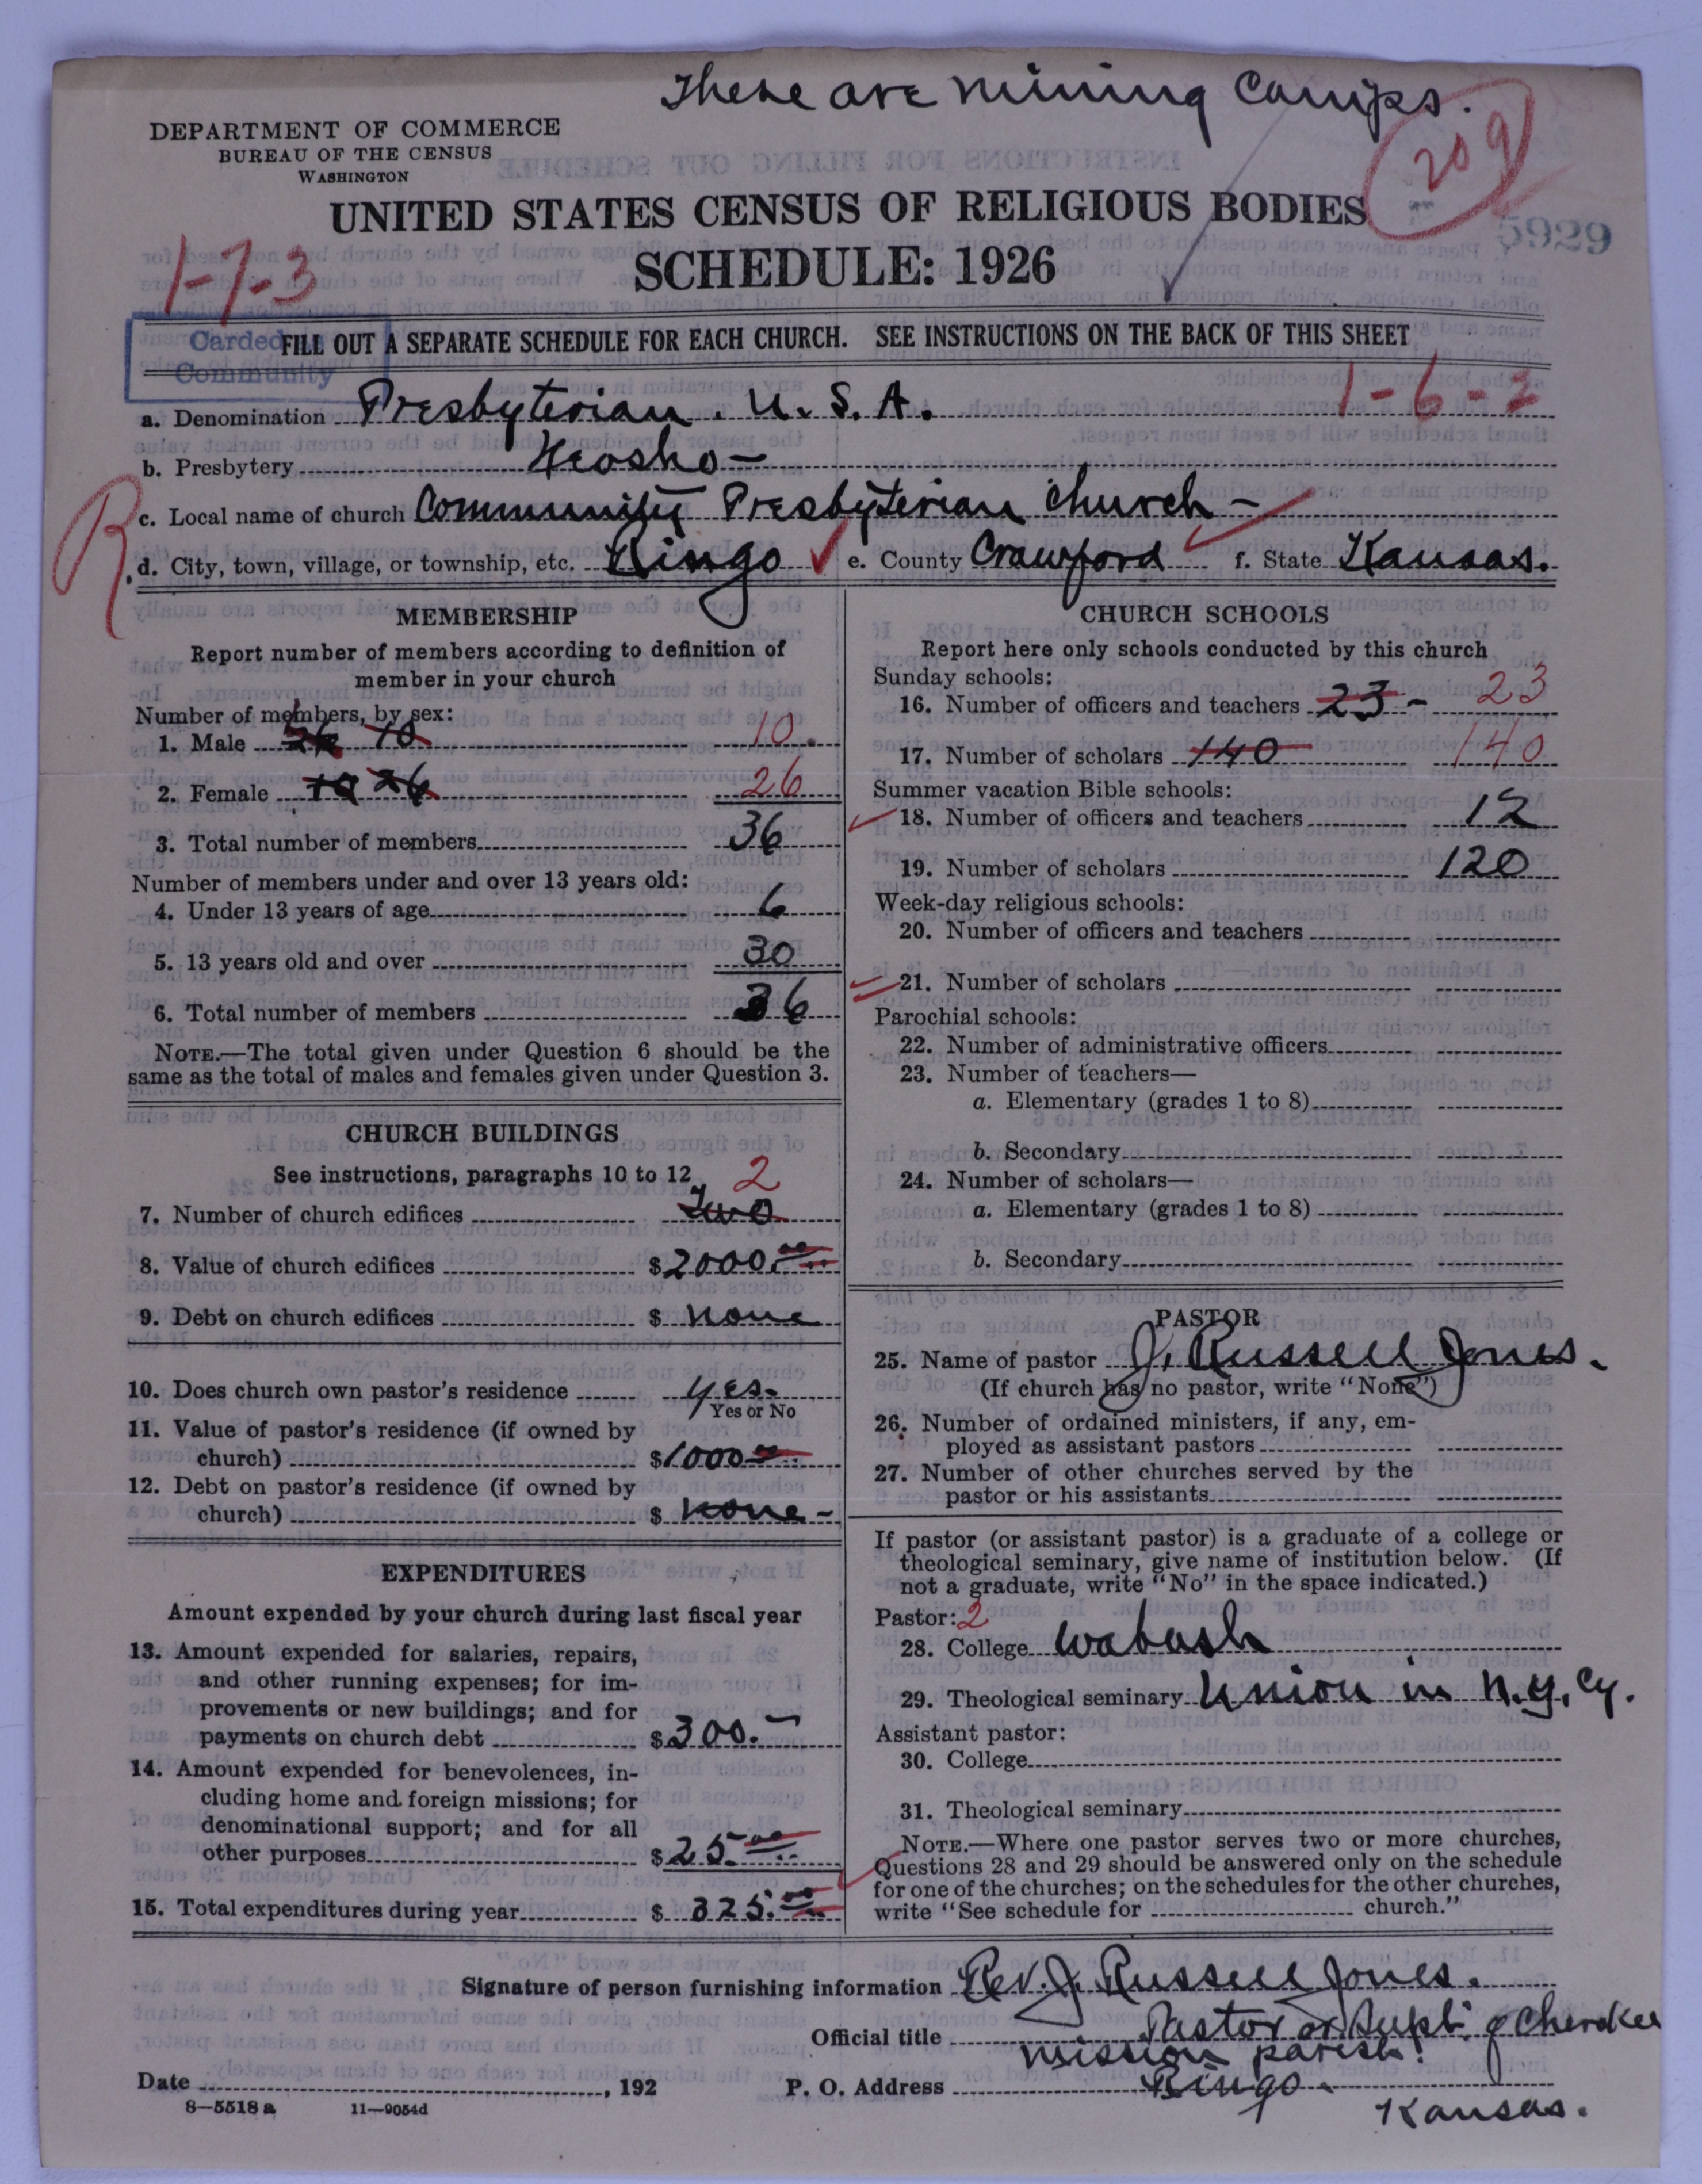 These are mining camps.
209
DEPARTMENT OF COMMERCE
BUREAU OF THE CENSUS
WASHINGTON
UNITED STATES CENSUS OF RELIGIOUS BODIES
5929
SCHEDULE: 1926
1-7-3
Carded
Community
FILL OUT A SEPARATE SCHEDULE FOR EACH CHURCH. SEE INSTRUCTIONS ON THE BACK OF THIS SHEET
1-6-2
a. Denomination Presbyterian. U. S. A.
b. Presbytery Neosho-
R
c. Local name of church Community Presbyterian Church-
d. City, town, village, or township, etc. Ringo e. County Crawford f. State Kansas.
MEMBERSHIP
Report number of members according to definition of
member in your church
Number of members, by sex:
1. Male 26 10 10
2. Female 10 26 26
3. Total number of members 36
Number of members under and over 13 years old:
4. Under 13 years of age 6
5. 13 years old and over 30
6. Total number of members 36
NOTE.—The total given under Question 6 should be the
same as the total of males and females given under Question 3.
CHURCH BUILDINGS
See instructions, paragraphs 10 to 12
2
7. Number of church edifices Two
8. Value of church edifices $2000.00
9. Debt on church edifices $ none
10. Does church own pastor's residence yes.
Yes or No
11. Value of pastor's residence (if owned by
church) $1000.00
12. Debt on pastor's residence (if owned by
church) $ none-
EXPENDITURES
Amount expended by your church during last fiscal year
13. Amount expended for salaries, repairs,
and other running expenses; for im-
provements or new buildings; and for
payments on church debt $300.-
14. Amount expended for benevolences, in-
cluding home and foreign missions; for
denominational support; and for all
other purposes $25.00
15. Total expenditures during year $ 325.00
CHURCH SCHOOLS
Report here only schools conducted by this church
Sunday schools:
16. Number of officers and teachers 23 - 23
17. Number of scholars 140 140
Summer vacation Bible schools:
18. Number of officers and teachers 12
19. Number of scholars 120
Week-day religious schools:
20. Number of officers and teachers
21. Number of scholars
Parochial schools:
22. Number of administrative officers
23. Number of teachers—
a. Elementary (grades 1 to 8)
b. Secondary
24. Number of scholars—
a. Elementary (grades 1 to 8)
b. Secondary
PASTOR
25. Name of pastor J. Russell Jones.
(If church has no pastor, write "None")
26. Number of ordained ministers, if any, em-
ployed as assistant pastors
27. Number of other churches served by the
pastor or his assistants
If pastor (or assistant pastor) is a graduate of a college or
theological seminary, give name of institution below. (If
not a graduate, write "No" in the space indicated.)
Pastor: 2
28. College Wabash
29. Theological seminary Union in N.Y. Cy.
Assistant pastor:
30. College
31. Theological seminary
NOTE.—Where one pastor serves two or more churches,
Questions 28 and 29 should be answered only on the schedule
for one of the churches; on the schedules for the other churches,
write "See schedule for church."
Signature of person furnishing information Rev. J. Russell Jones.
Official title Pastor or Supt. of Cherokee
mission parish!
Date , 192 P. O. Address Ringo.
Kansas.
8—5518a 11—9054d